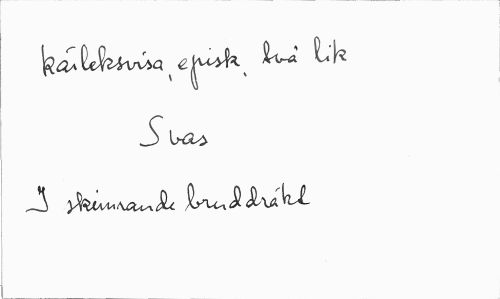 kärleksvisa, episk, två lik
Svas
I skimrande bruddräkt